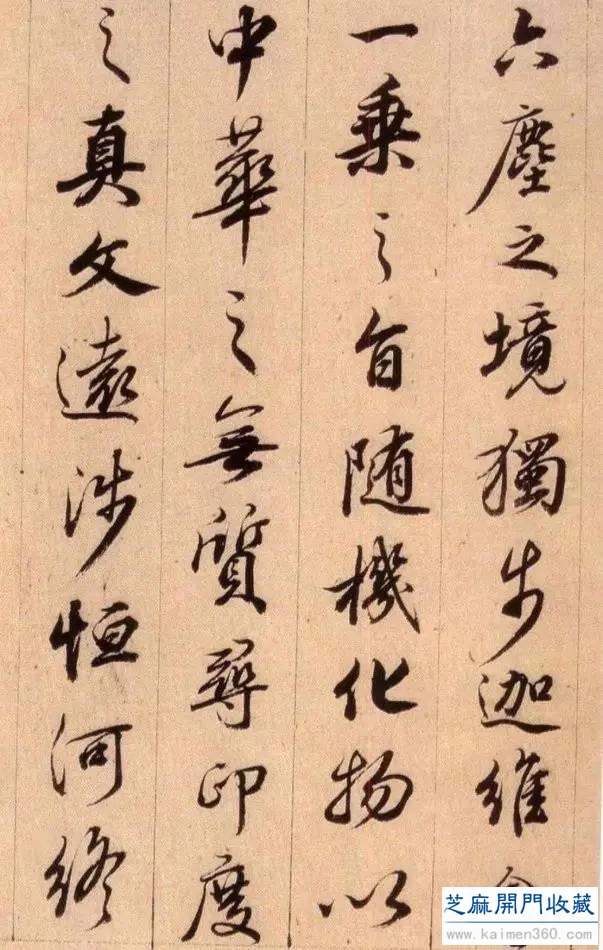 六塵之境獨步迦維會
一乘之旨随機化物以
中華之無質尋印度
之真文遠涉恒河終
芝麻開門收藏
www.kaimen360.com